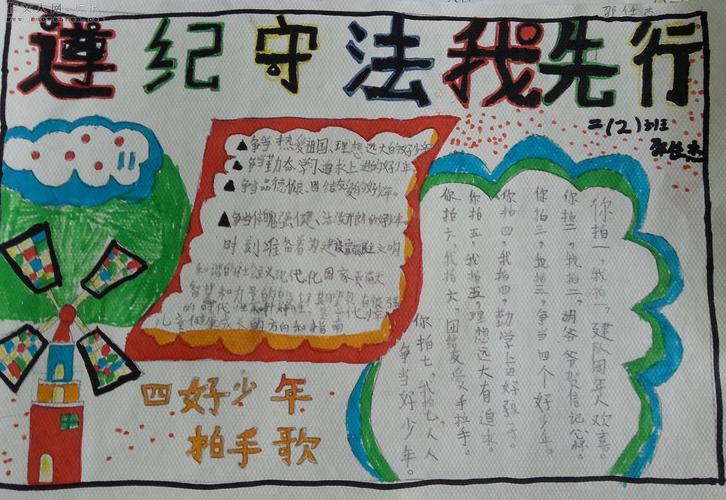 遵纪守法我先行
二(2)班
▲争当热爱祖国、理想远大的好少年
▲争当勤奋学习追求上进的好少年
▲争当品德优良、团结友爱的好少年。
▲争当体魄强健、活泼开朗的好少年
时刻准备着为建设富强民主文明
和谐的社会主义现代化国家贡献
智慧和力量
四好少年
拍手歌
你拍一,我拍一,建队周年人欢喜。
你拍二,我拍二,胡爷爷贺信记心怀。
你拍三,我拍三,争当四个好少年。
你拍四,我拍四,勤学上进好孩子。
你拍五,我拍五,理想远大有追求。
你拍六,我拍六,团结友爱手拉手。
你拍七,我拍七,人人
争当好少年。